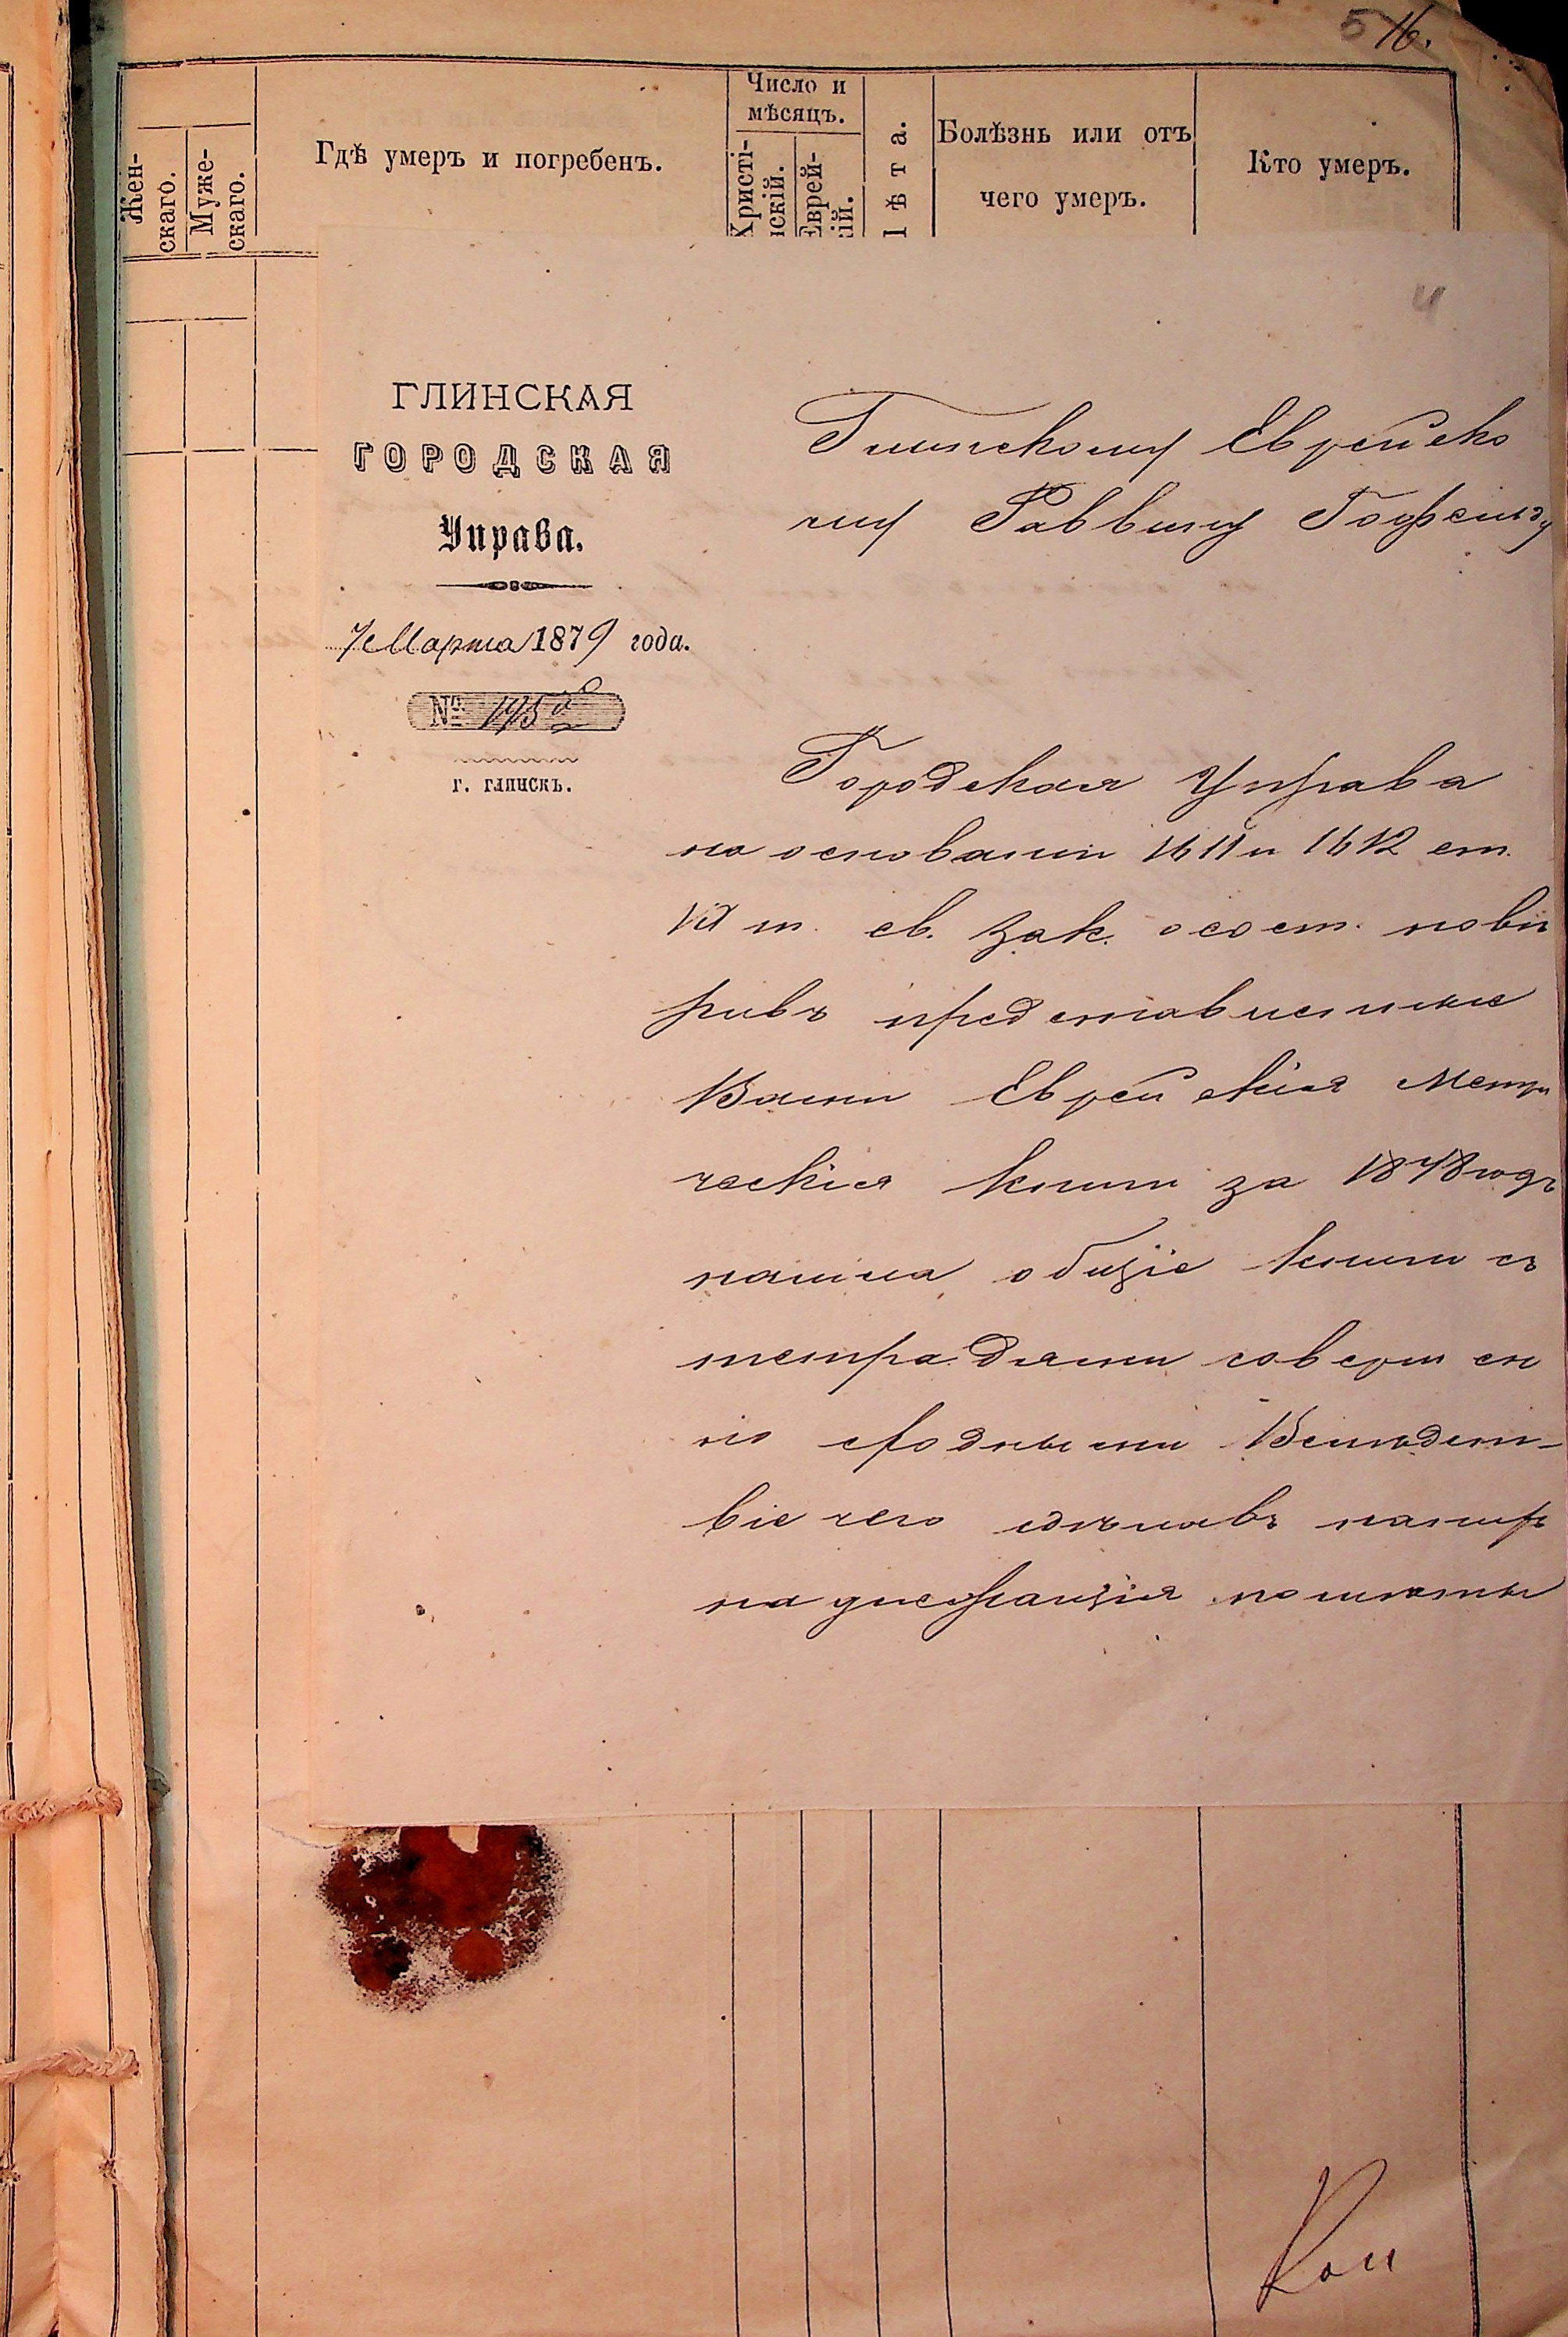 16.
Жен-
скаго.
Муже-
скаго.
Гдѣ умеръ и погребенъ.
Число и
мѣсяцъ.
Христі-
нскій.
Еврей-
кій.
Лѣта.
Болѣзнь или отъ
чего умеръ.
Кто умеръ.
4
ГЛИНСКАЯ
ГОРОДСКАЯ
Управа.
7 Марта 1879 года.
№
г. Глинскъ.
Глинскому Еврейско
му Раввину
Городская Управа
на основаніи 1611 и 1612 ст.
IX т. св. зак. о сост. повѣ
ривъ представленные
Вами Еврейскія Метри
ческія книги за 1878 годъ
нашла общіе книги съ
тетрадями совершен
но сходными Вслѣдст-
віе чего сдѣлавъ
на помѣты
Кон